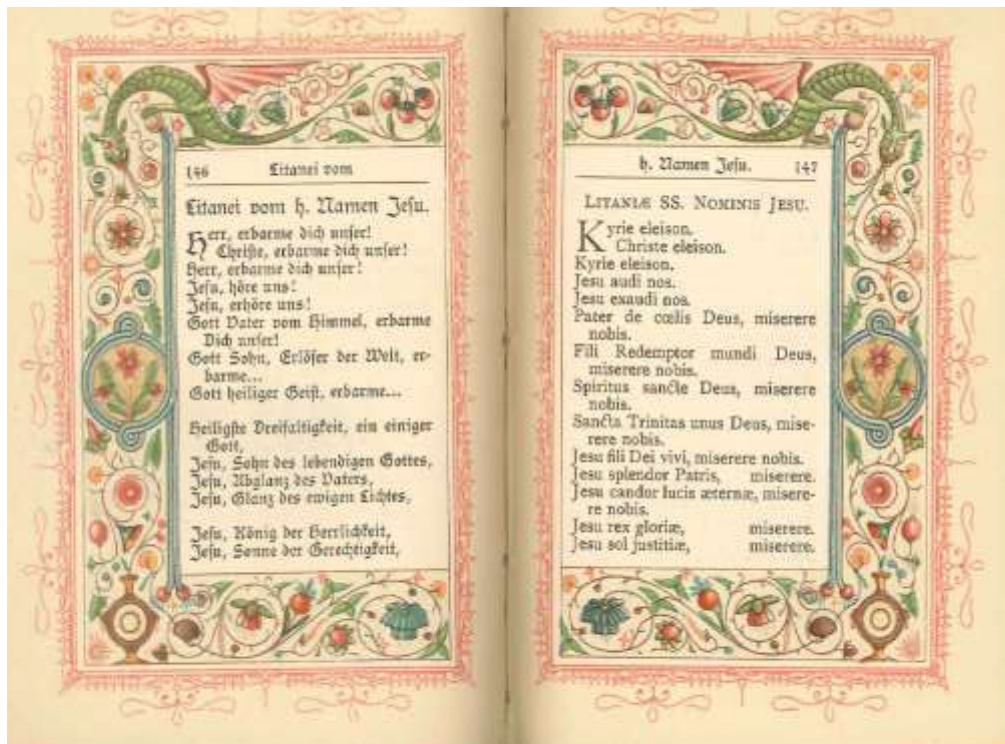 146 Litanei vom
Litanei vom h. Namen Jesu.
Herr, erbarme dich unser!
Christe, erbarme dich unser!
Herr, erbarme dich unser!
Jesu, höre uns!
Jesu, erhöre uns!
Gott Vater vom Himmel, erbarme
Dich unser!
Gott Sohn, Erlöser der Welt, er-
barme...
Gott heiliger Geist, erbarme...
Heiligste Dreifaltigkeit, ein einiger
Gott,
Jesu, Sohn des lebendigen Gottes,
Jesu, Abglanz des Vaters,
Jesu, Glanz des ewigen Lichtes,
Jesu, König der Herrlichkeit,
Jesu, Sonne der Gerechtigkeit,
h. Namen Jesu. 147
LITANIÆ SS. NOMINIS JESU.
Kyrie eleison.
Christe eleison.
Kyrie eleison.
Jesu audi nos.
Jesu exaudi nos.
Pater de cœlis Deus, miserere
nobis.
Fili Redemptor mundi Deus,
miserere nobis.
Spiritus sancte Deus, miserere
nobis.
Sancta Trinitas unus Deus, mise-
rere nobis.
Jesu fili Dei vivi, miserere nobis.
Jesu splendor Patris, miserere.
Jesu candor lucis æternæ, misere-
re nobis.
Jesu rex gloriæ, miserere.
Jesu sol justitiæ, miserere.